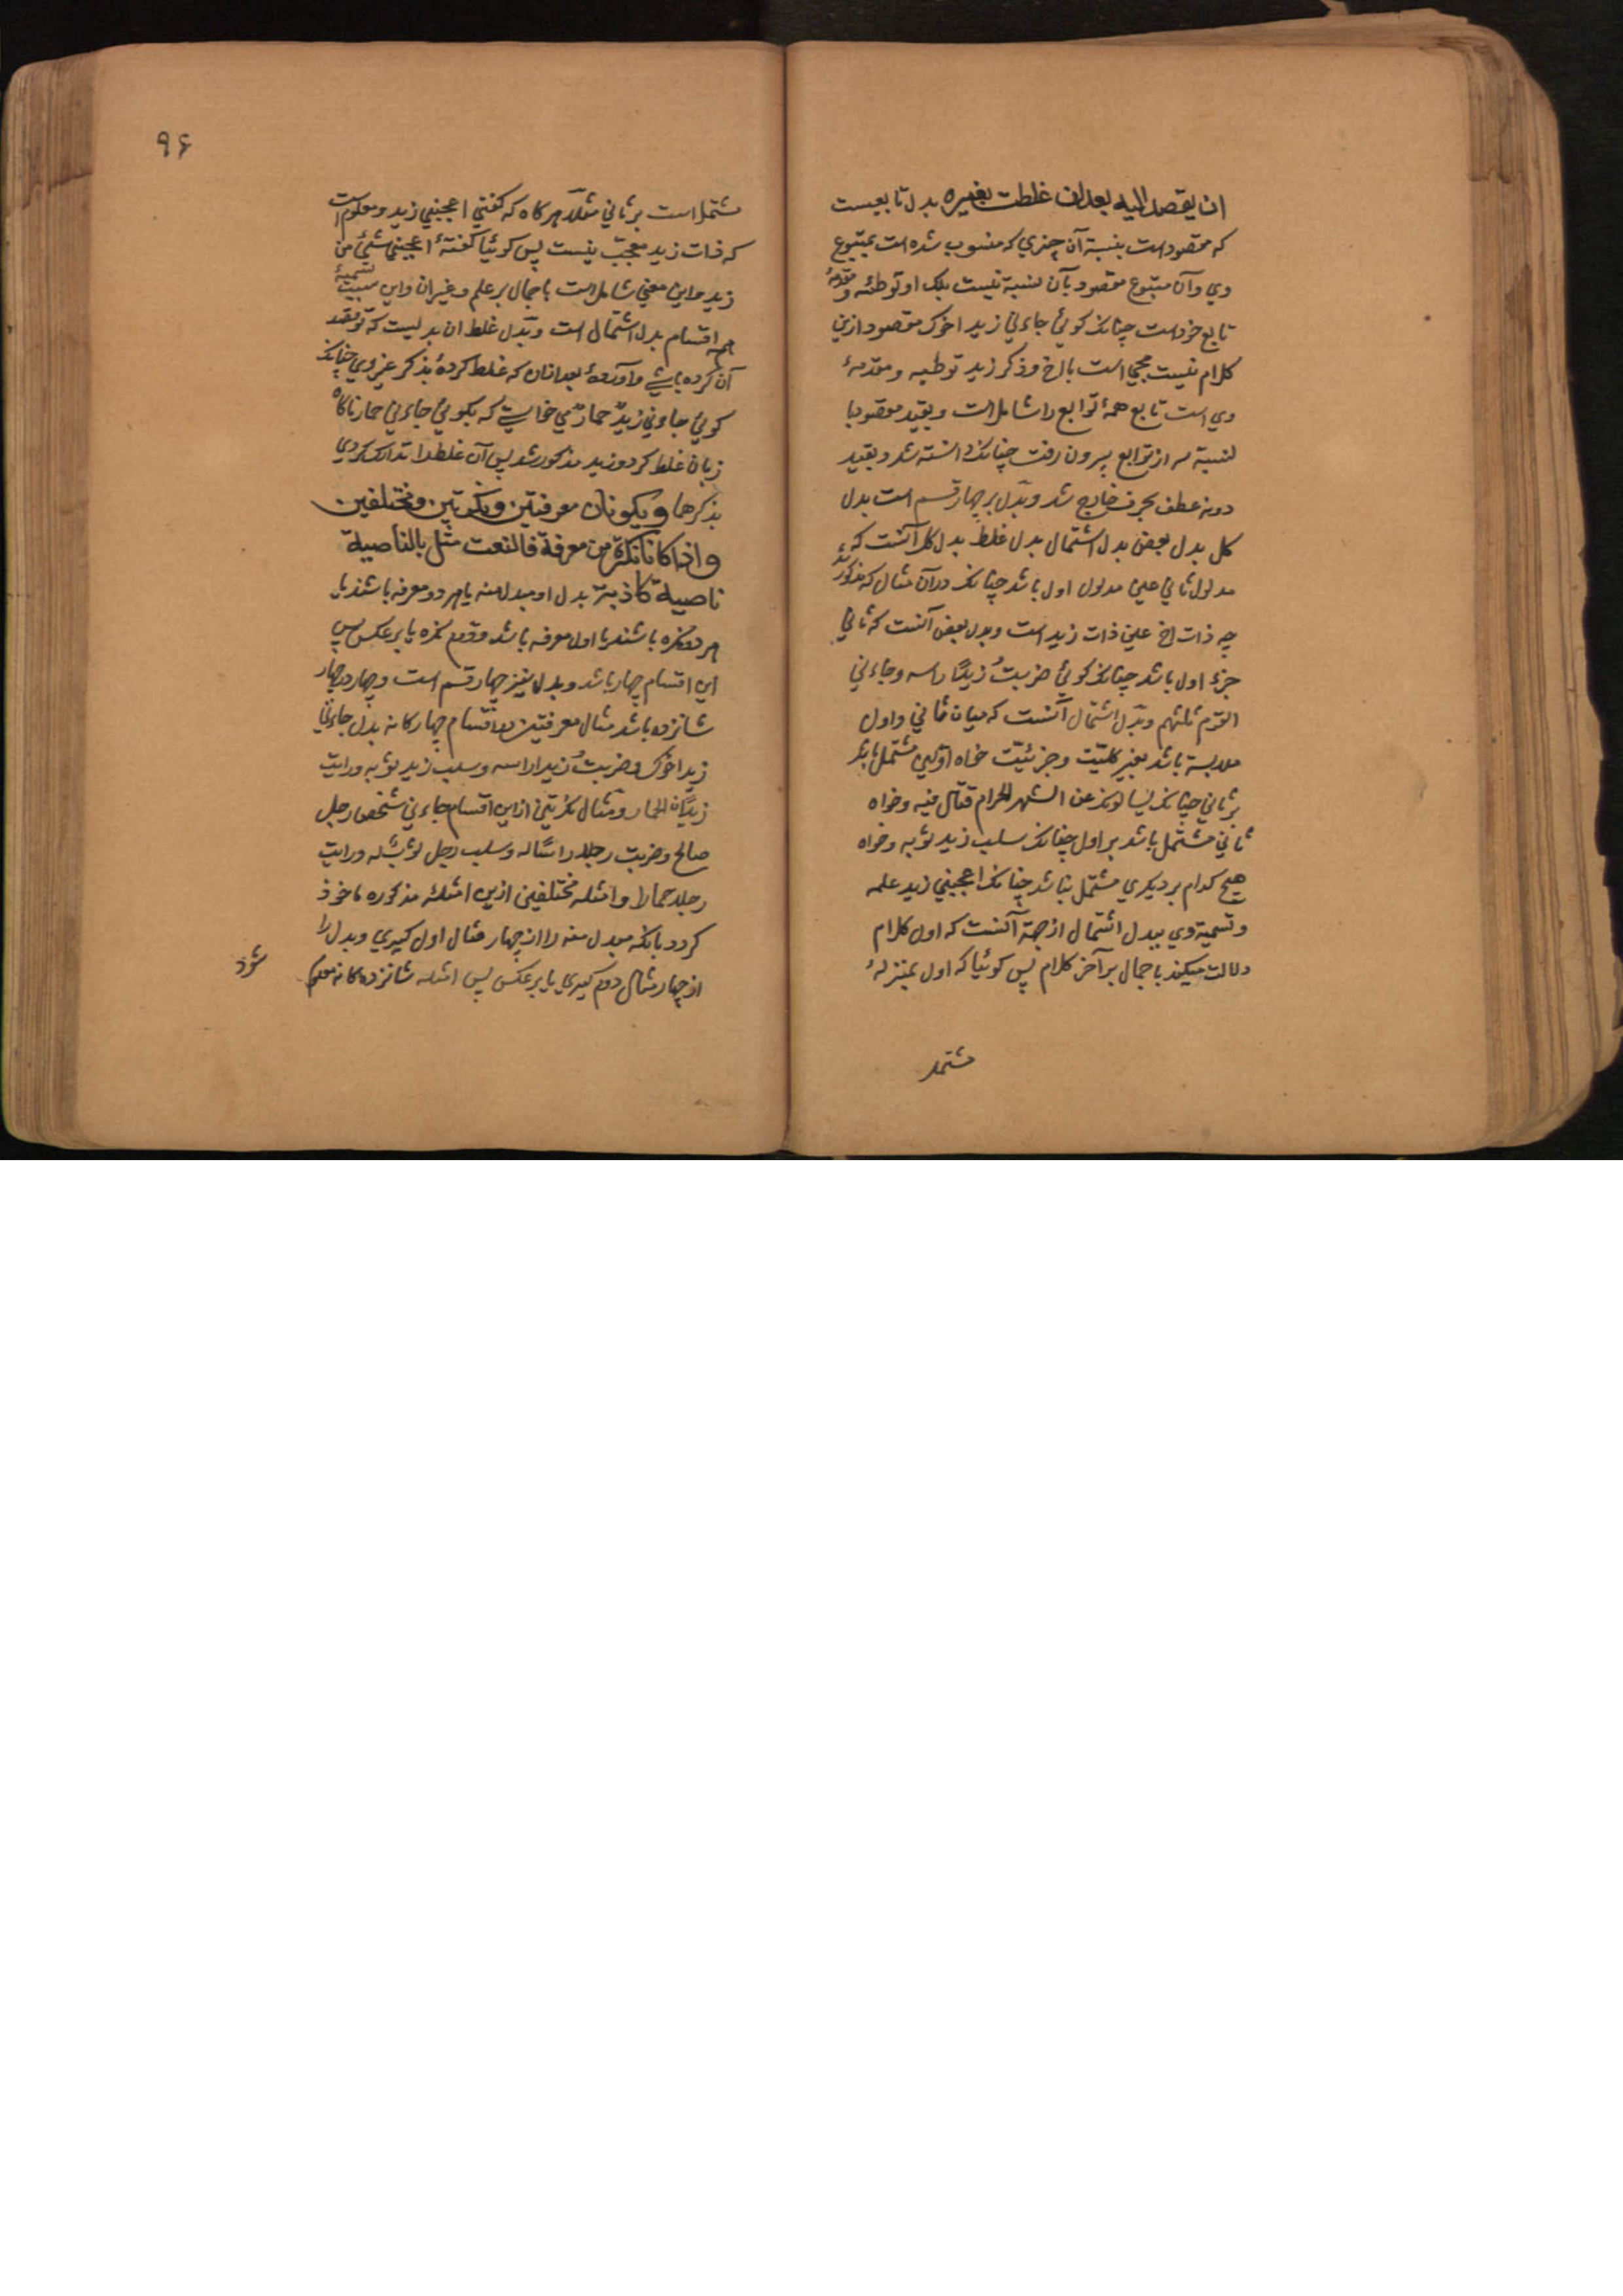 ان یقصد الیه بعد ان غلطت بغیره بدل تابعیست
که مقصود است بنسبة آن چیزی که منسوب شده است بمتبوع
وی و آن متبوع مقصود بآن نسبة نیست بلک او توطئه و مقدمهٔ
تابع خود است چنانک کوئی جاءنی زید اخوک مقصود ازین
کلام نسبت مجیٔ است باخ و ذکر زید توطیه و مقدمهٔ
وی است تابع همهٔ توابع را شامل است و بقید مقصود با
لنسبة سه از توابع بیرون رفت چنانک دانسته شد و بقید
دونه عطف بحرف خارج شد و بدل بر چهار قسم است بدل
کل بدل بعض بدل اشتمال بدل غلط بدل کل آنست که
مدلول ثانی عین مدلول اول باشد چنانک در آن مثال که مذکور شد
چه ذات اخ عین ذات زید است و بدل بعض آنست که ثانی
جزء اول باشد چنانک کوئی ضربتُ زیدًا راسه و جاءنی
القوم ثلثهم و بدل اشتمال آنست که میان ثانی و اول
ملابسة باشد بغیر کلیّت و جزئیّت خواه اوّل مشتمل باشد
بر ثانی چنانک یسالونک عن الشهر الحرام قتال فیه و خواه
ثانی مشتمل باشد بر اول چنانک سلب زید ثوبه و خواه
هیچ کدام بر دیکری مشتمل نباشد چنانک اعجبنی زید علمه
و تسمیة وی ببدل اشتمال از جهة آنست که اول کلام
دلالت میکند باجمال بر آخر کلام پس کوئیا که اول بمنزلهٔ
مشتمل
۹۶
مشتمل است بر ثانی مثلاً هر کاه که کفتی اعجبنی زید و معلوم است
که ذات زید معجب نیست پس کوئیا کفتهٔ اعجبنی شیٔ من
زید و این معنی شامل است باجمال بر علم و غیر آن و این سبب تسمیهٔ
همه اقسام بدل اشتمال است و بدل غلط آن بدلیست که تو قصد
آن کرده باشی و آوردهٔ بعد از آن که غلط کردهٔ بذکر غیر وی چنانک
کوئی جاءنی زیدٌ حمارٌ می خواستی که بکوئی جاءنی حمار ناکاه
زبان غلط کرد و زید مذکور شد پس آن غلط را تدارک کردی
بذکرها ویکونان معرفتین ونکرتین ومختلفین
واذا کان نکرة من معرفة فالنعت مثل بالناصیة
ناصیة کاذبة بدل او مبدل منه یا هر دو معرفه باشند یا
هر دو نکره باشند یا اول معرفه باشد و دوم نکره یا بر عکس پس
این اقسام چهار باشد و بدل نیز چهار قسم است و چهار در چهار
شانزده باشد مثال معرفتین در اقسام چهارکانه بدل جاءنی
زید اخوک و ضربتُ زیدا راسه و سلب زید ثوبه و رایت
زیدًا الحمار و مثال نکرتین از این اقسام جاءنی شخص رجل
صالح و ضربت رجلا راسًا له و سلب رجل ثوبٌ له و رایت
رجلا حمارا و امثله مختلفین ازین امثلهٔ مذکوره ماخوذ
کردد بانکه مبدل منه را از چهار مثال اول کیری و بدل را
از چهار مثال دوم کیری یا بر عکس پس امثله شانزده کانه معلوم
شود